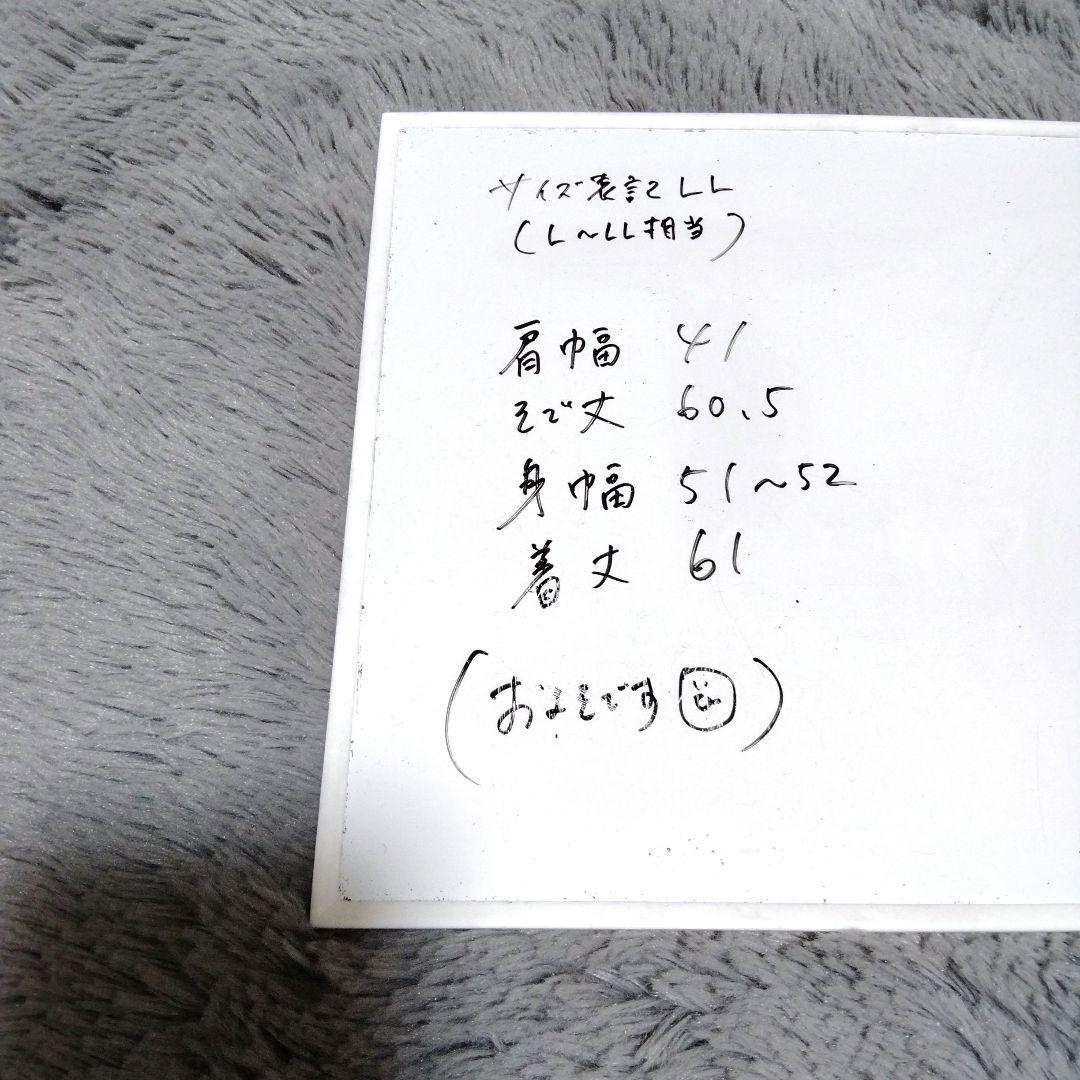 サイズ表記LL
(L〜LL相当)
肩幅 41
そで丈 60.5
身幅 51〜52
着丈 61
(およそです)